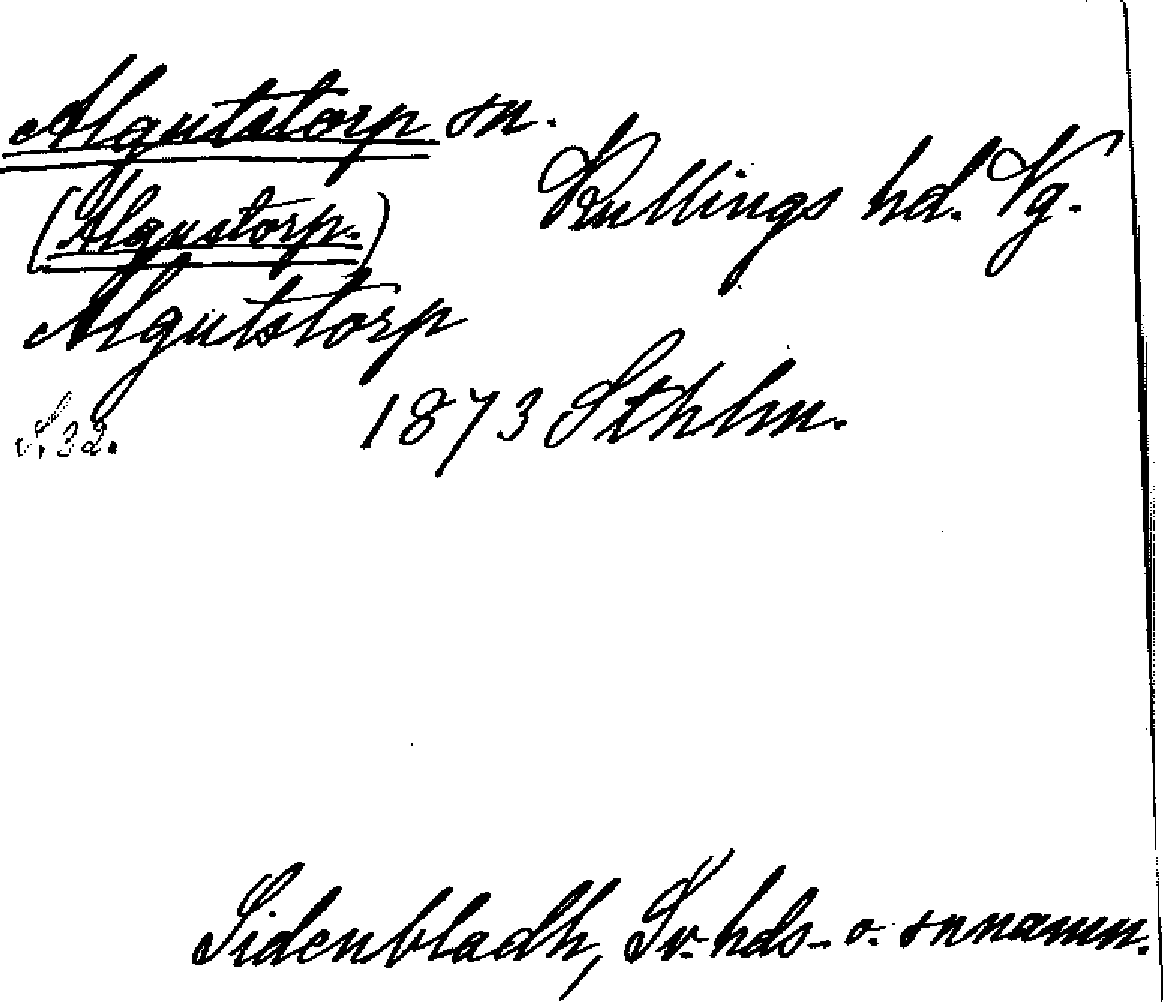 Algutstorp sn.
Kullings hd. Vg.
(Algustorp.)
Algutstorp
1873 Sthlm.
s. 32.
Sidenbladh, Sv. hds- o. snnamn.